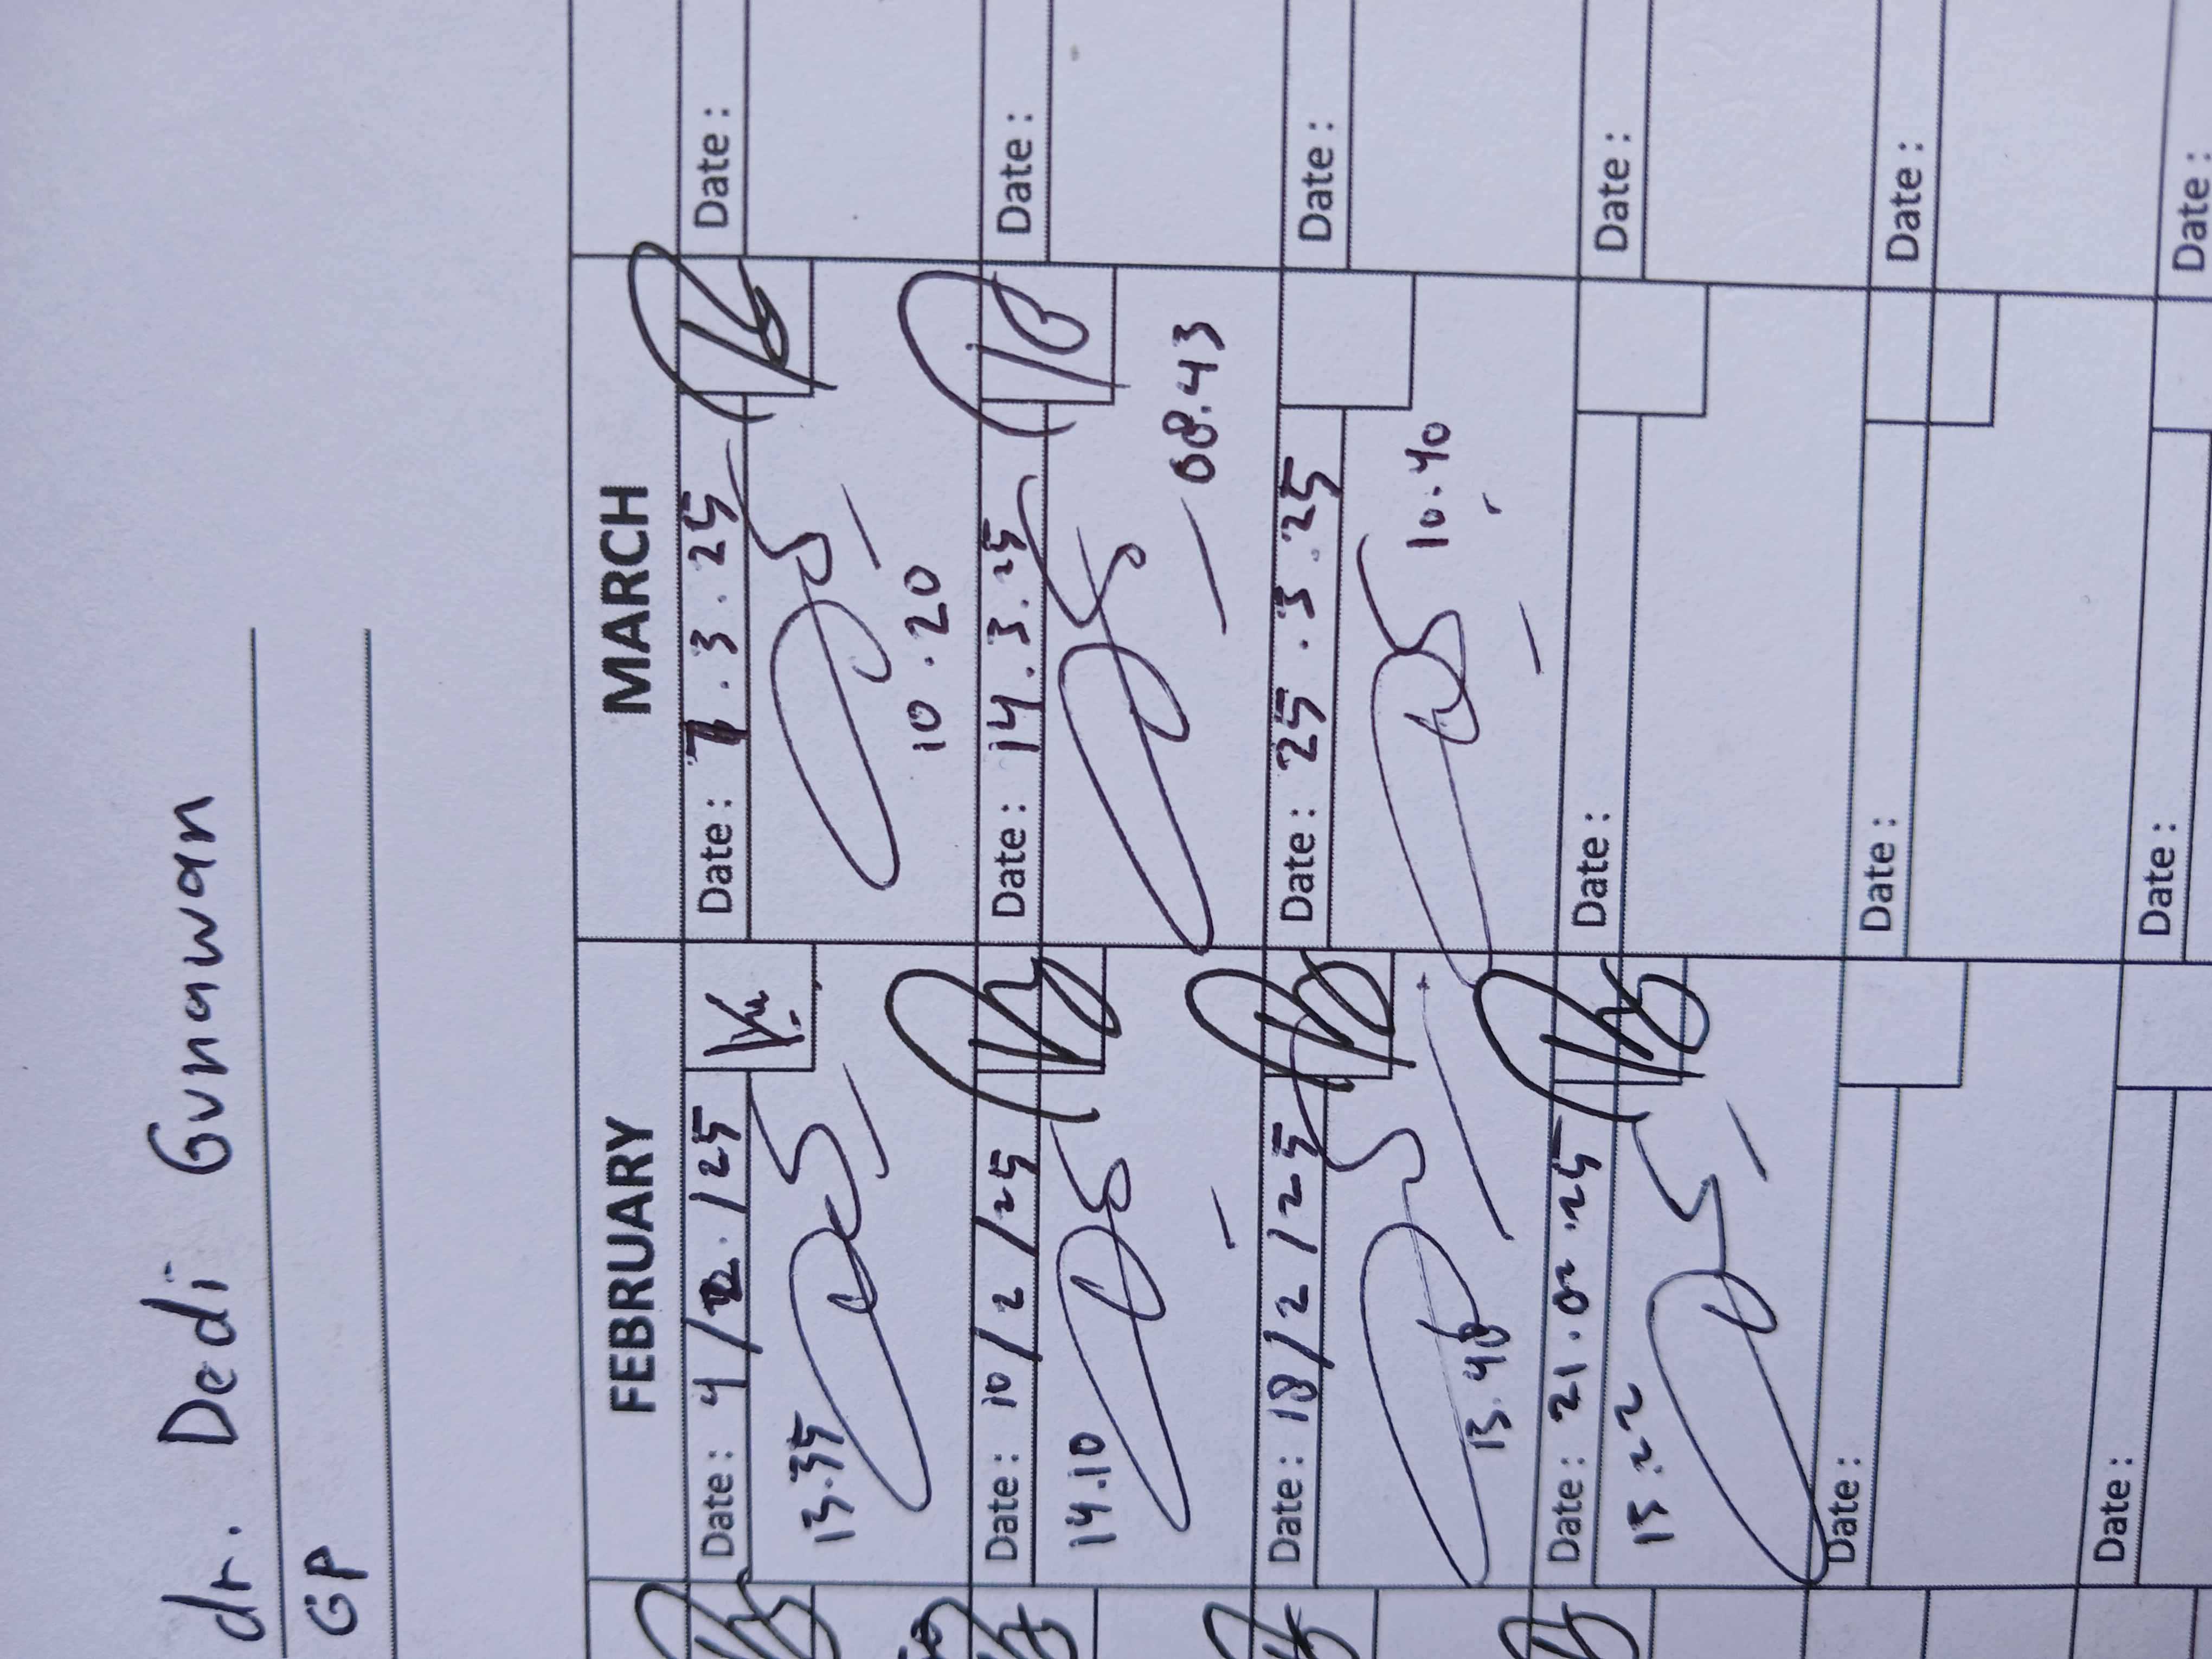 dr. Dedi Gunawan
GP
FEBRUARY MARCH
Date : 4/2/25 Date : 7.3.25 Date :
13.35
10.20
Date : 10/2/25 Date : 14.3.25 Date :
14.10
08.43
Date : 18/2/25 Date : 25.3.25 Date :
13.40
10.40
Date : 21.02.25 Date : Date :
15.22
Date : Date : Date :
Date : Date : Date :